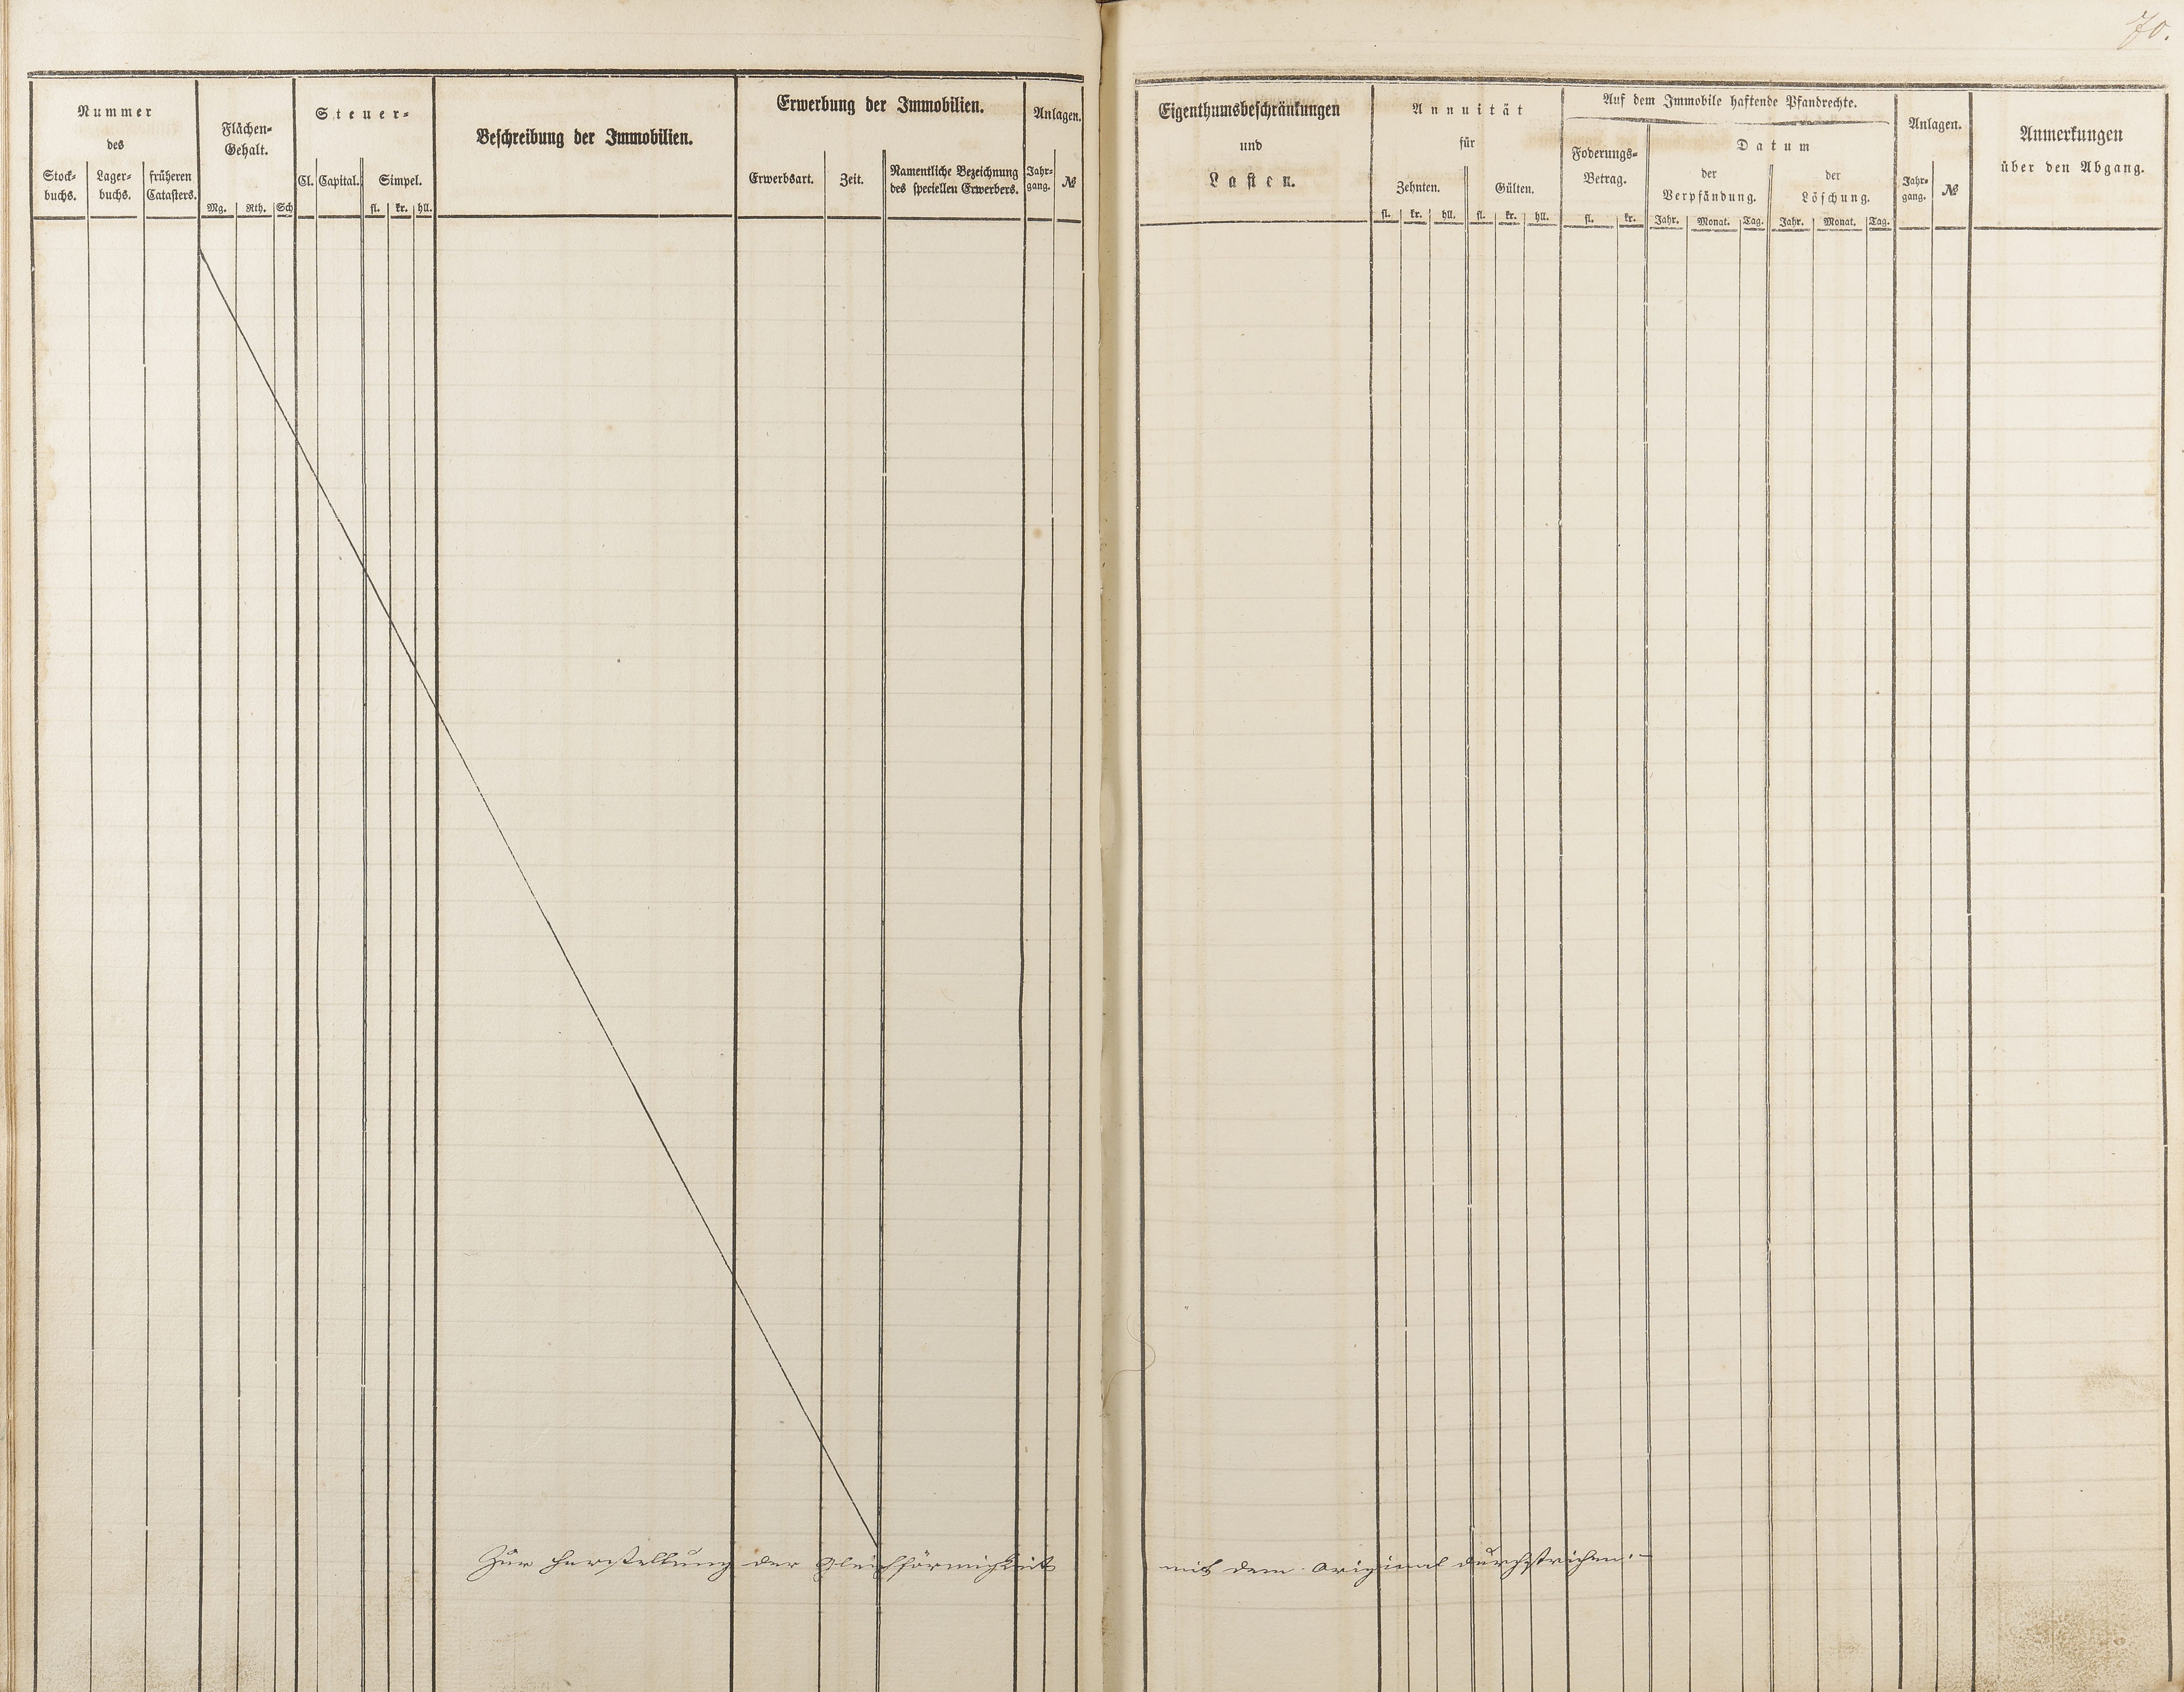 70.
Nummer
des
Stock-
buchs.
Lager-
buchs.
früheren
Catasters.
Flächen-
Gehalt.
Mg. Rth. Sch
Steuer-
Cl. Capital. Simpel.
fl. kr. hll.
Beschreibung der Immobilien.
Erwerbung der Immobilien.
Erwerbsart. Zeit.
Namentliche Bezeichnung
des speciellen Erwerbers.
Anlagen.
Jahr-
gang.
№
Eigenthumsbeschränkungen
und
Lasten.
Annuität
für
Zehnten. Gülten.
fl. kr. hll. fl. kr. hll.
Auf dem Immobile haftende Pfandrechte.
Foderungs-
Betrag.
fl. kr.
Datum
der
Verpfändung.
Jahr. Monat. Tag.
der
Löschung.
Jahr. Monat. Tag.
Anlagen.
Jahr-
gang.
№
Anmerkungen
über den Abgang.
Zur Herstellung der Gleichförmigkeit mit dem Original durchstrichen.-